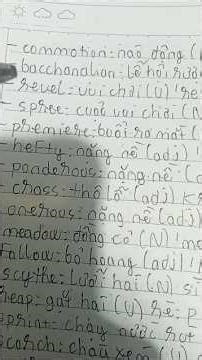 - commotion: náo động (
- bacchanalian: lễ hội rượu
- revel: vui chơi (v) 're
- spree: cuộc vui chơi (N
- premiere: buổi ra mắt (
- hefty: nặng nề (adj) '
- ponderous: nặng nề: (
- crass: thô lỗ (adj) k
onerous: nặng nề (adj)
meadow: đồng cỏ (N) 'me
fallow: bỏ hoang (adj) '
scythe: lưỡi hái (N) si
reap: gặt hái (v) rē: p
print: chảy nước
corch: cháy xém (